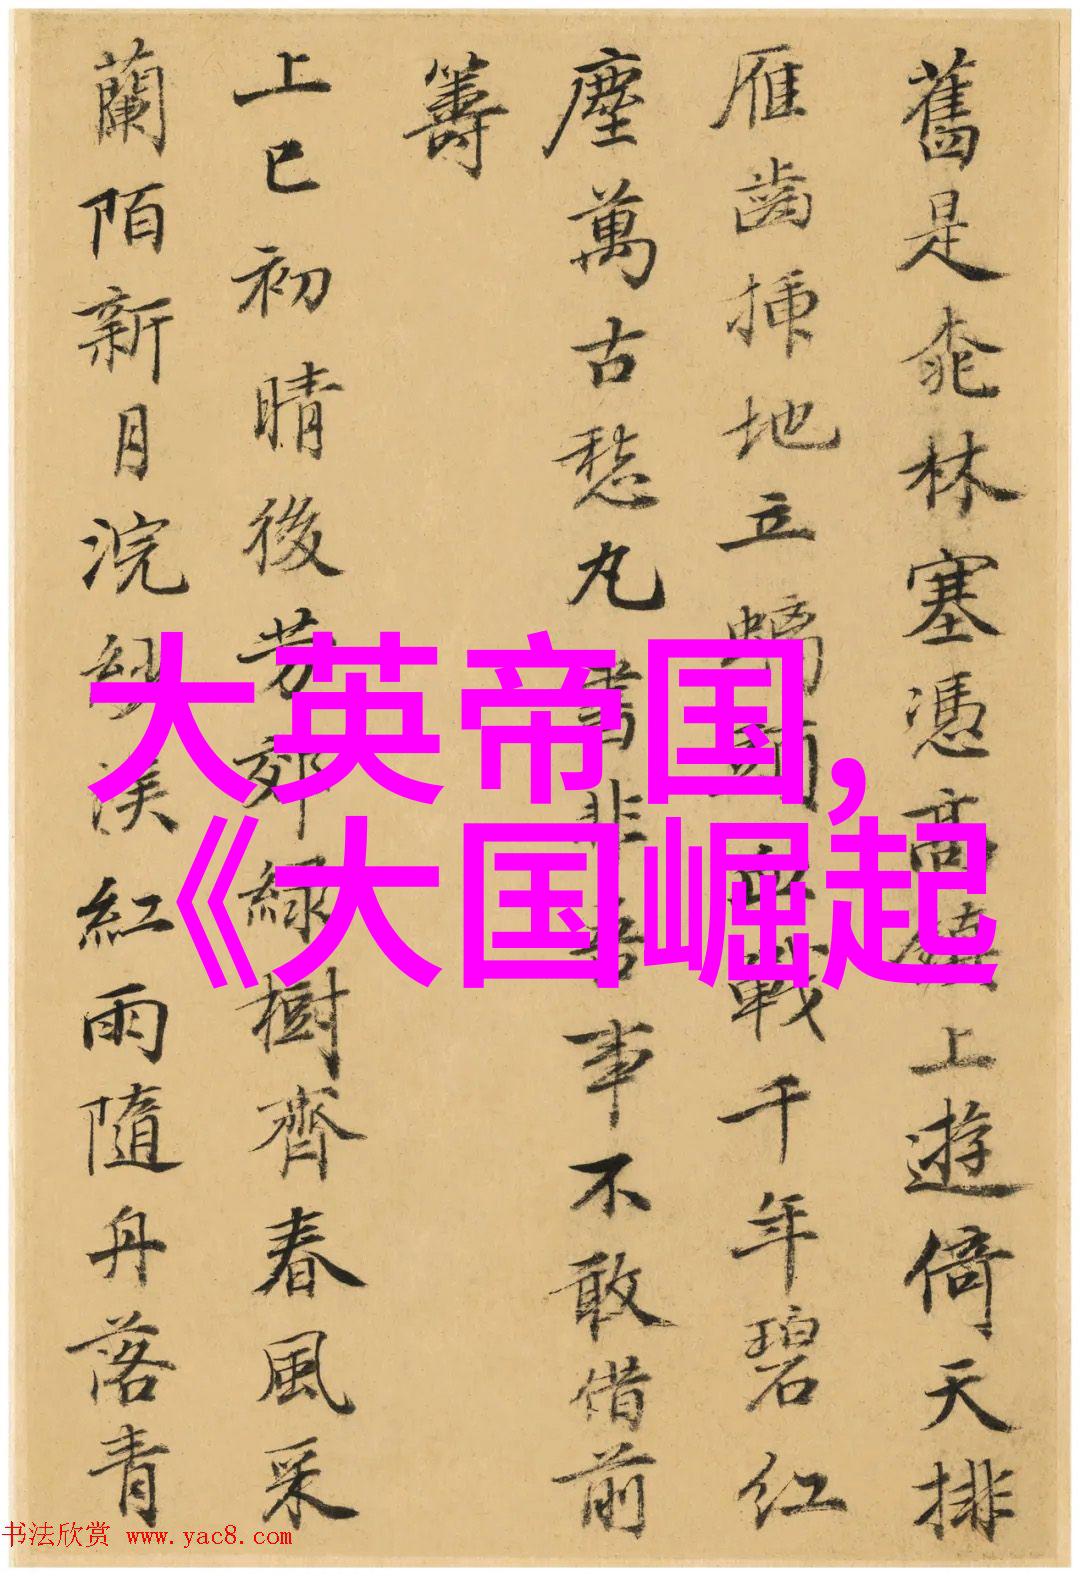 舊是桃林塞憑高鎮上遊倚天排
雁齒插地立螭頭血戰千年碧紅
塵萬古愁丸書非吾事不敢借前
籌
上巳初晴後芳郊綠樹齊春風采
蘭陌新月浣紗溪紅雨隨丹落青
大英帝国,
《大国崛起
书法欣赏 www.yac8.com